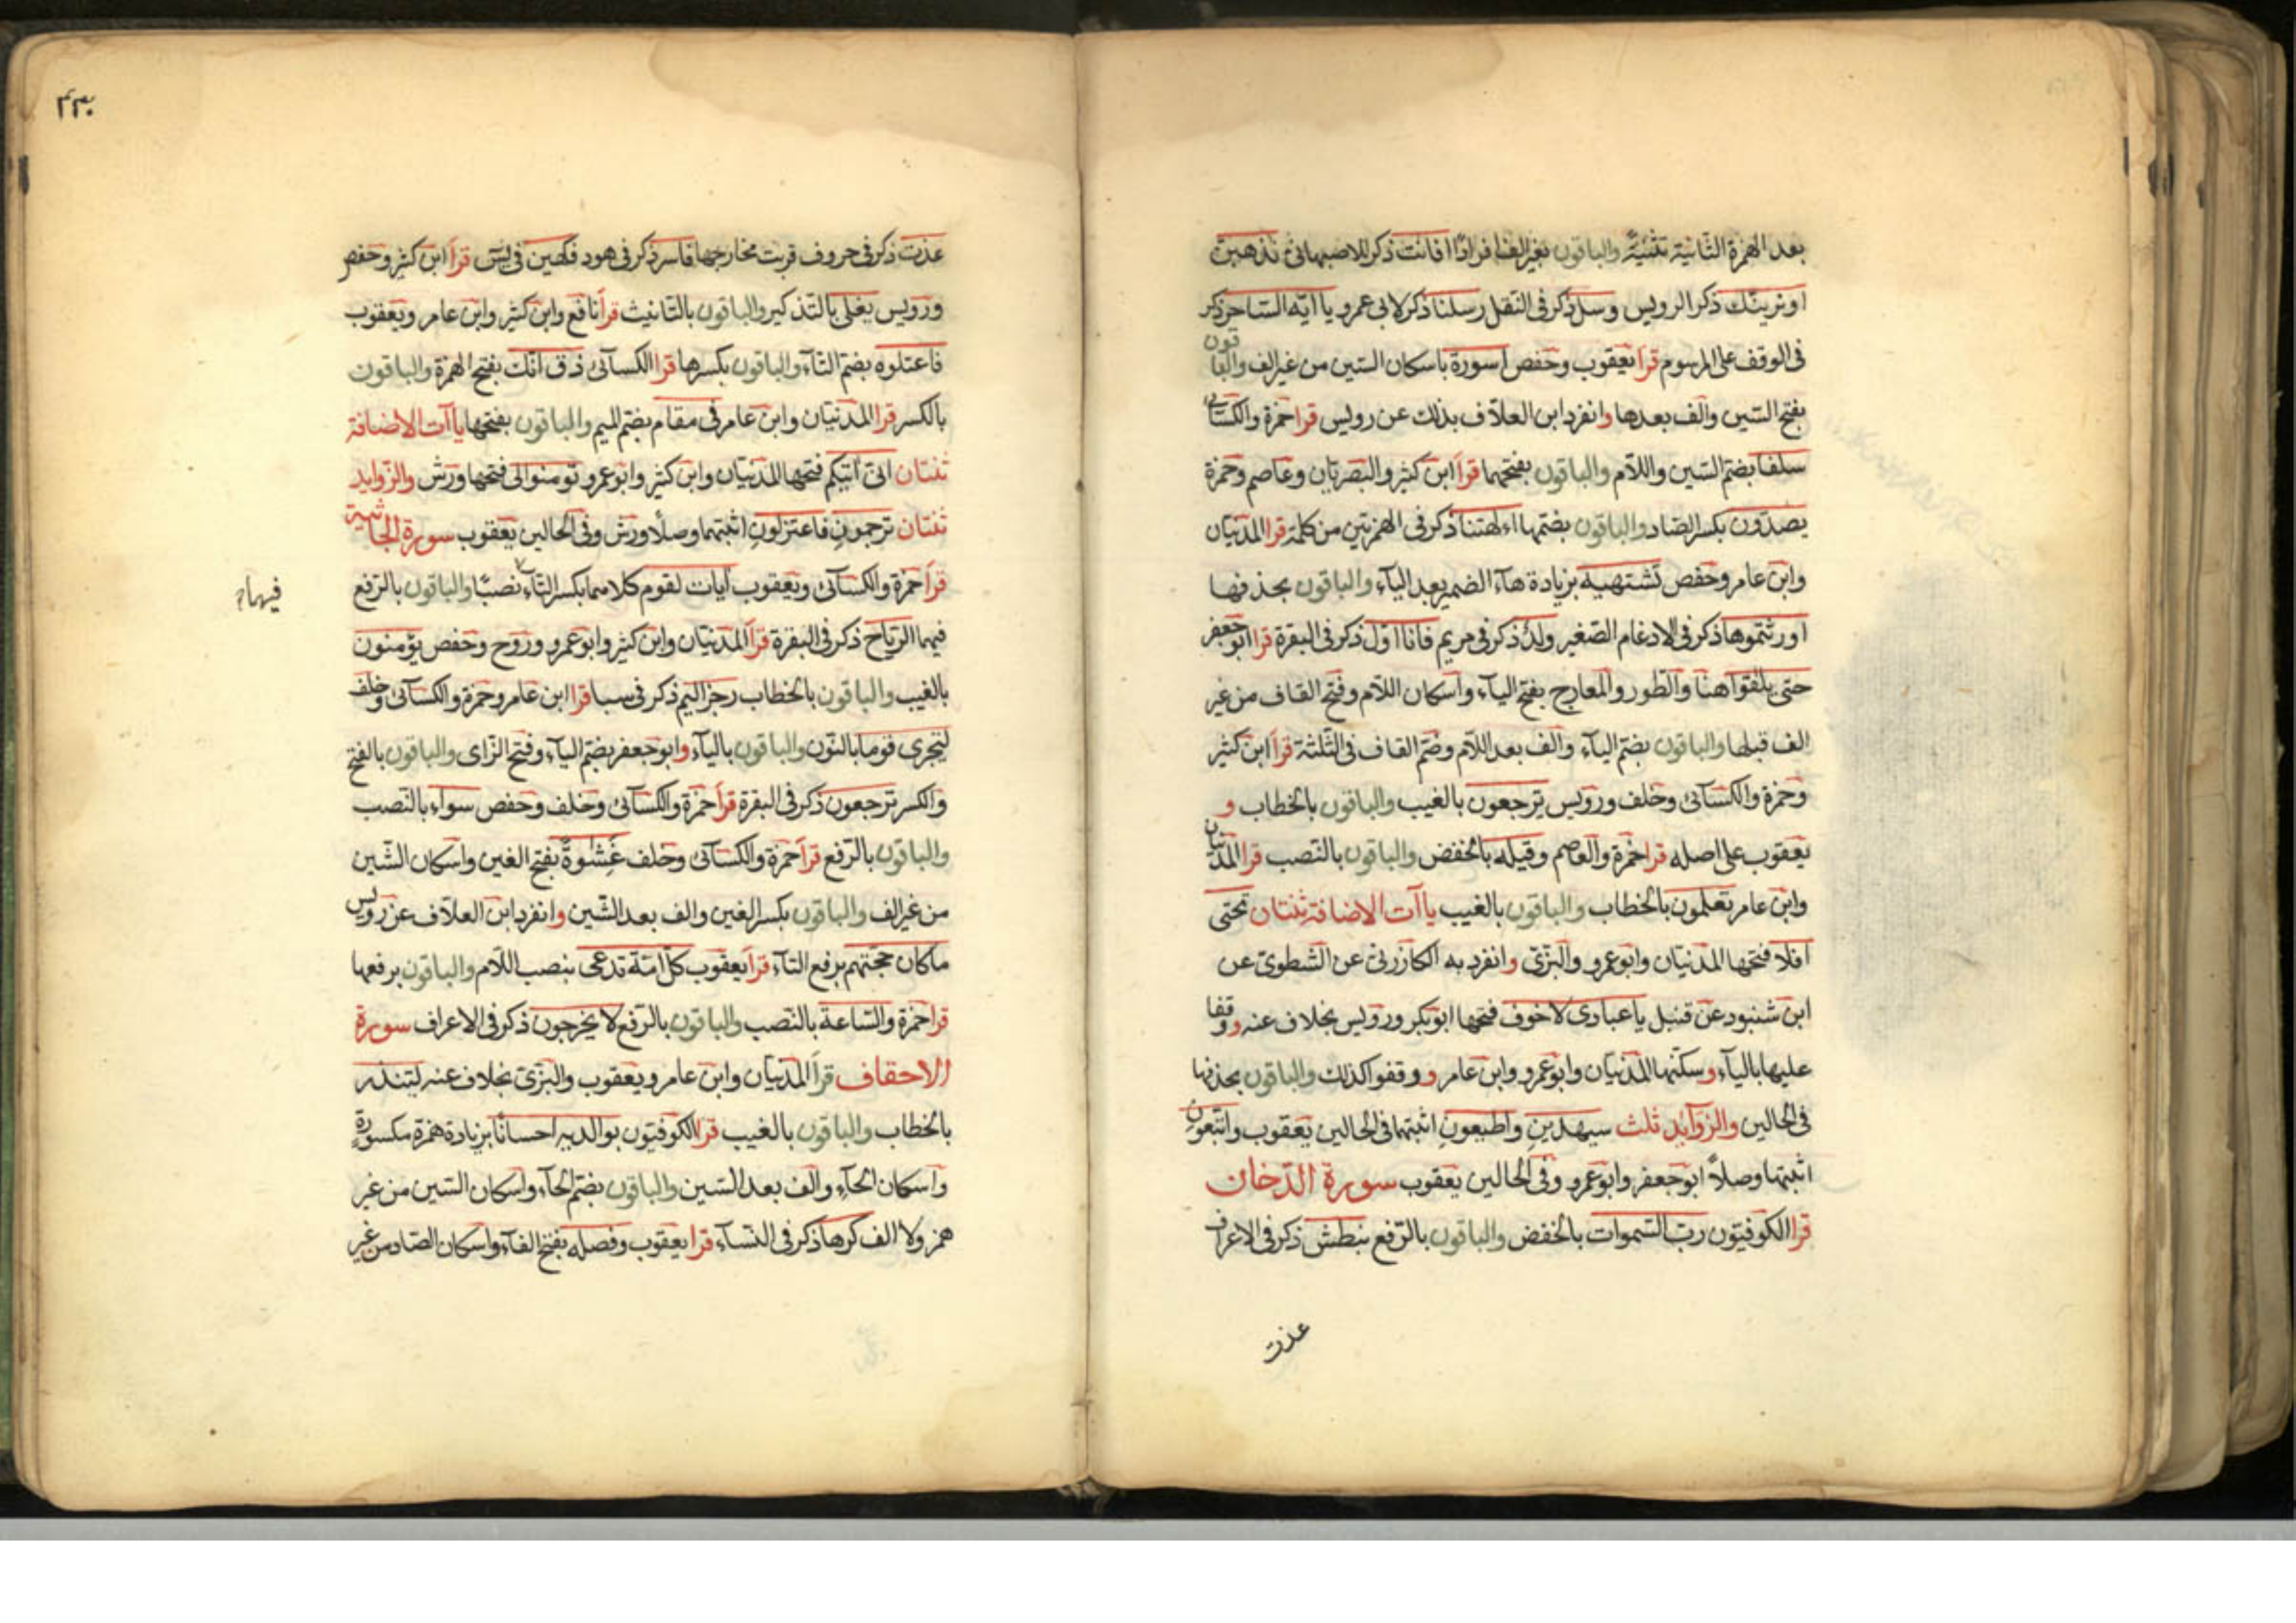 بعد الهمزة الثانية تثنية والباقون بغير الف افرادا افانت ذكر للاصبهاني نذهبن
او نرينك ذكر الرويس وسل ذكر في النقل رسلنا ذكر لابي عمرو يا ايه الساحر ذكر
في الوقف على المرسوم قرأ يعقوب وحفص اسورة باسكان السين من غير الف والباقون
بفتح السين والف بعدها وانفرد ابن العلاف بذلك عن رويس قرا حمزة والكسائي
سلفا بضم السين واللام والباقون بفتحهما قرأ ابن كثير والبصريان وعاصم وحمزة
يصدون بكسر الصاد والباقون بضمها اءلهتنا ذكر في الهمزتين من كلمة قرا المدنيان
وابن عامر وحفص تشتهيه بزيادة هاء الضمير بعد الياء والباقون بحذفها
اورثتموها ذكر في الادغام الصغير ولد ذكر في مريم فانا اول ذكر في البقرة قرا ابو جعفر
حتى يلقوا هنا والطور والمعارج بفتح الياء واسكان اللام وفتح القاف من غير
الف قبلها والباقون بضم الياء والف بعد اللام وضم القاف في الثلثة قرأ ابن كثير
وحمزة والكسائي وخلف ورويس يرجعون بالغيب والباقون بالخطاب و
يعقوب على اصله قرا حمزة والعاصم وقيله بالخفض والباقون بالنصب قرا المدنيان
وابن عامر تعلمون بالخطاب والباقون بالغيب ياآت الاضافة ثنتان تحتى
افلا فتحها المدنيان وابو عمرو والبزي وانفرد به الكازرني عن الشطوي عن
ابن شنبود عن قنبل يا عبادي لا خوف فتحها ابو بكر ورويس بخلاف عنه ووقفا
عليها بالياء وسكنها المدنيان وابو عمرو وابن عامر ووقفوا كذلك والباقون بحذفها
في الحالين والزوايد ثلث سيهدين واطيعون اثبتهما في الحالين يعقوب واتبعون
اثبتها وصلا ابو جعفر وابو عمرو وفي الحالين يعقوب سورة الدخان
قرا الكوفيون رب السموات بالخفض والباقون بالرفع نبطش ذكر في الاعراف
عذت
٢٣٠
عذت ذكر في حروف قربت مخارجها فاسر ذكر في هود فكهين في يس قرأ ابن كثير وحفص
ورويس يغلي بالتذكير والباقون بالتانيث قرأ نافع وابن كثير وابن عامر ويعقوب
فاعتلوه بضم التاء والباقون بكسرها قرا الكسائي ذق انك بفتح الهمزة والباقون
بالكسر قرا المدنيان وابن عامر في مقام بضم الميم والباقون بفتحها ياآت الاضافة
ثنتان اني اتيكم فتحها المدنيان وابن كثير وابو عمرو تومنوا لي فتحها ورش والزوايد
ثنتان ترجمون فاعتزلون اثبتهما وصلا ورش وفي الحالين يعقوب سورة الجاثية
قرأ حمزة والكسائي ويعقوب آيات لقوم كلاهما بكسر التاء نصبا والباقون بالرفع
فيهما
فيهما الرياح ذكر في البقرة قرأ المدنيان وابن كثير وابو عمرو وروح وحفص يؤمنون
بالغيب والباقون بالخطاب رجز اليم ذكر في سبا قرا ابن عامر وحمزة والكسائي وخلف
لنجزي قوما بالنون والباقون بالياء وابو جعفر بضم الياء وفتح الزاى والباقون بالفتح
والكسر ترجعون ذكر في البقرة قرأ حمزة والكسائي وخلف وحفص سواء بالنصب
والباقون بالرفع قرأ حمزة والكسائي وخلف غشوة بفتح الغين واسكان الشين
من غير الف والباقون بكسر الغين والف بعد الشين وانفرد ابن العلاف عن رويس
ماكان حجتهم برفع التاء قرأ يعقوب كل امة تدعى بنصب اللام والباقون برفعها
قرا حمزة والساعة بالنصب والباقون بالرفع لا يخرجون ذكر في الاعراف سورة
الاحقاف قرأ المدنيان وابن عامر ويعقوب والبزي بخلاف عنه لتنذر
بالخطاب والباقون بالغيب قرا الكوفيون بوالديه احسانا بزيادة همزة مكسورة
واسكان الحاء والف بعد السين والباقون بضم الحاء واسكان السين من غير
همز ولا الف كرها ذكر في النساء قرا يعقوب وفصله بفتح الفاء واسكان الصاد من غير